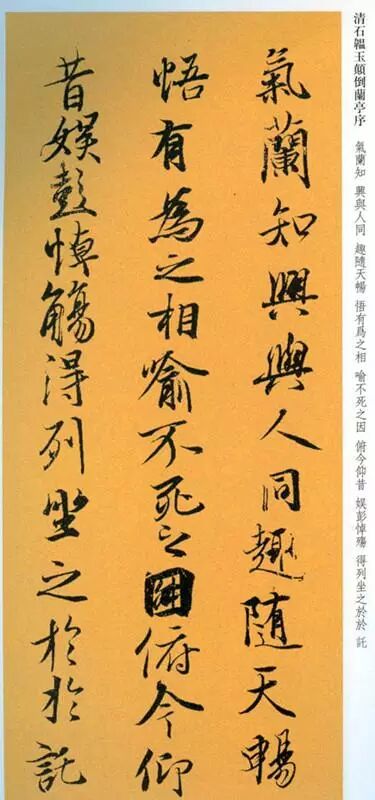 清石韞玉顛倒蘭亭序
氣蘭知 興與人同 趣隨天暢 悟有爲之相 喻不死之因 俯今仰昔 娱彭悼殤 得列坐之於於 託
氣蘭知興與人同趣隨天暢
悟有為之相喻不死之因俯今仰
昔娱彭悼觴得列坐之於於託